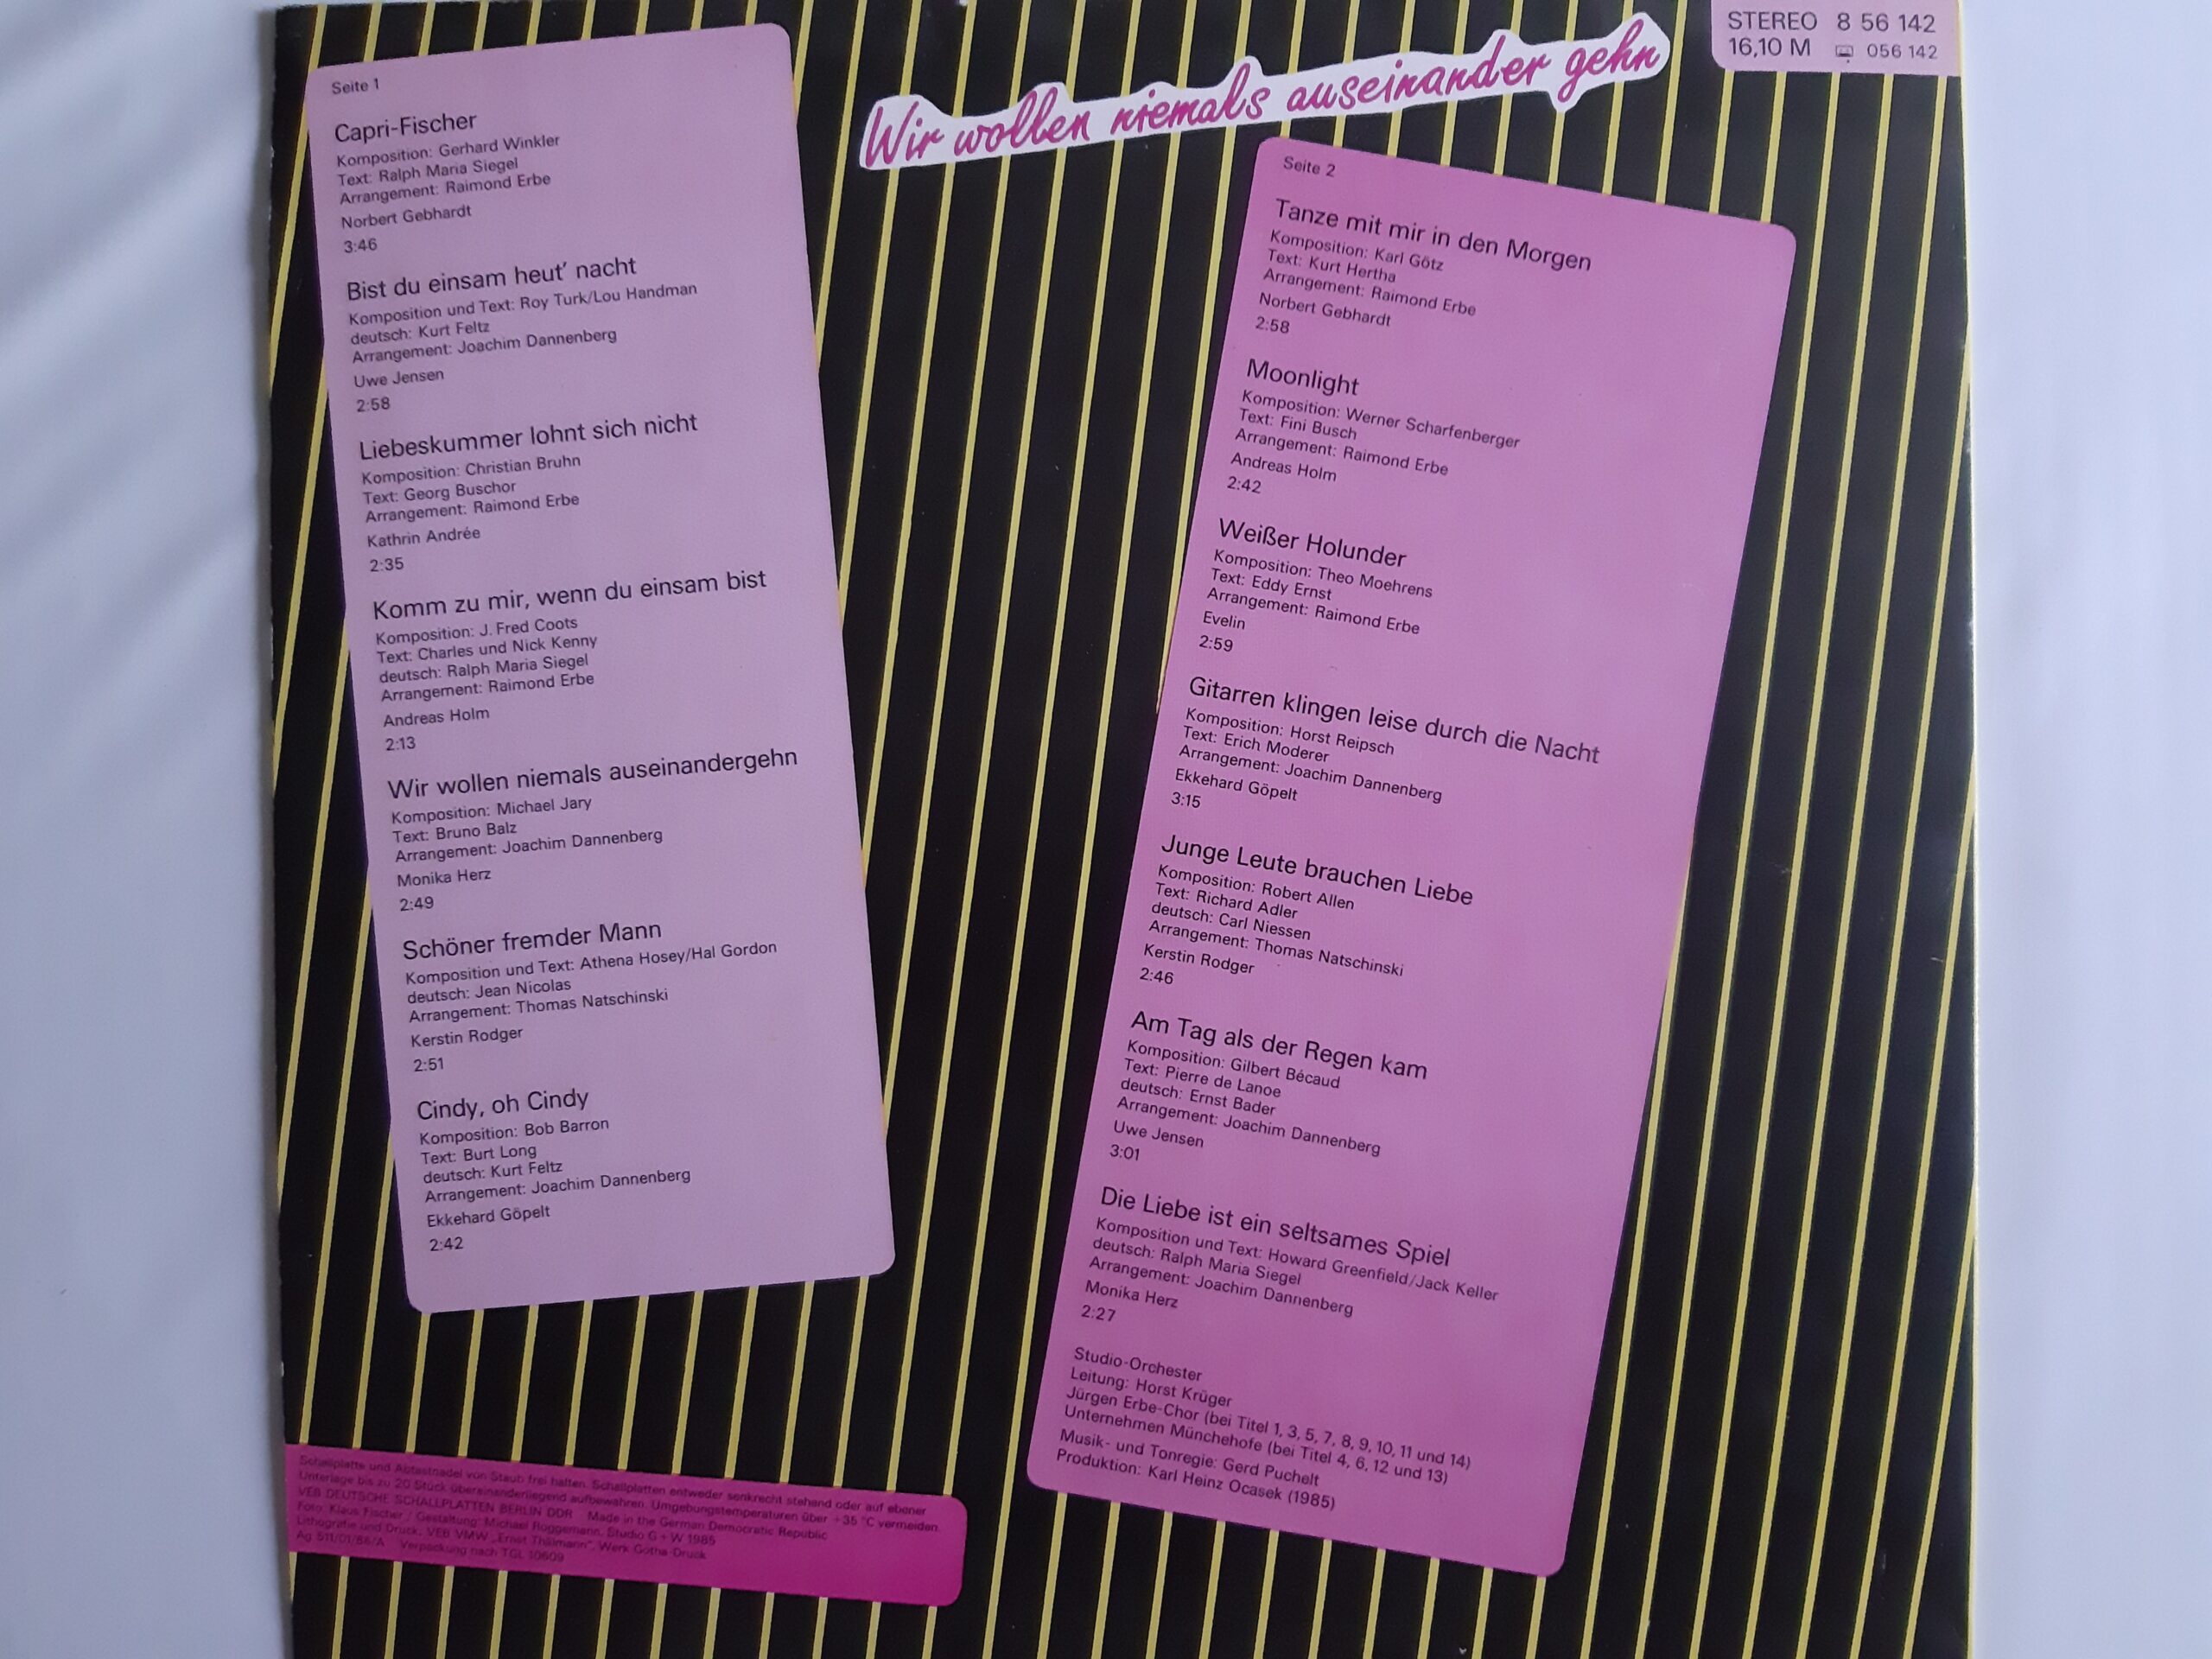 STEREO 8 56 142
16,10 M 056 142
Wir wollen niemals auseinander gehn
Seite 1
Capri-Fischer
Komposition: Gerhard Winkler
Text: Ralph Maria Siegel
Arrangement: Raimond Erbe
Norbert Gebhardt
3:46
Bist du einsam heut' nacht
Komposition und Text: Roy Turk/Lou Handman
deutsch: Kurt Feltz
Arrangement: Joachim Dannenberg
Uwe Jensen
2:58
Liebeskummer lohnt sich nicht
Komposition: Christian Bruhn
Text: Georg Buschor
Arrangement: Raimond Erbe
Kathrin Andrée
2:35
Komm zu mir, wenn du einsam bist
Komposition: J. Fred Coots
Text: Charles und Nick Kenny
deutsch: Ralph Maria Siegel
Arrangement: Raimond Erbe
Andreas Holm
2:13
Wir wollen niemals auseinandergehn
Komposition: Michael Jary
Text: Bruno Balz
Arrangement: Joachim Dannenberg
Monika Herz
2:49
Schöner fremder Mann
Komposition und Text: Athena Hosey/Hal Gordon
deutsch: Jean Nicolas
Arrangement: Thomas Natschinski
Kerstin Rodger
2:51
Cindy, oh Cindy
Komposition: Bob Barron
Text: Burt Long
deutsch: Kurt Feltz
Arrangement: Joachim Dannenberg
Ekkehard Göpelt
2:42
Seite 2
Tanze mit mir in den Morgen
Komposition: Karl Götz
Text: Kurt Hertha
Arrangement: Raimond Erbe
Norbert Gebhardt
2:58
Moonlight
Komposition: Werner Scharfenberger
Text: Fini Busch
Arrangement: Raimond Erbe
Andreas Holm
2:42
Weißer Holunder
Komposition: Theo Moehrens
Text: Eddy Ernst
Arrangement: Raimond Erbe
Evelin
2:59
Gitarren klingen leise durch die Nacht
Komposition: Horst Reipsch
Text: Erich Moderer
Arrangement: Joachim Dannenberg
Ekkehard Göpelt
3:15
Junge Leute brauchen Liebe
Komposition: Robert Allen
Text: Richard Adler
deutsch: Carl Niessen
Arrangement: Thomas Natschinski
Kerstin Rodger
2:46
Am Tag als der Regen kam
Komposition: Gilbert Bécaud
Text: Pierre de Lanoe
deutsch: Ernst Bader
Arrangement: Joachim Dannenberg
Uwe Jensen
3:01
Die Liebe ist ein seltsames Spiel
Komposition und Text: Howard Greenfield/Jack Keller
deutsch: Ralph Maria Siegel
Arrangement: Joachim Dannenberg
Monika Herz
2:27
Studio-Orchester
Leitung: Horst Krüger
Jürgen Erbe-Chor (bei Titel 1, 3, 5, 7, 8, 9, 10, 11 und 14)
Unternehmen Münchehofe (bei Titel 4, 6, 12 und 13)
Musik- und Tonregie: Gerd Puchelt
Produktion: Karl Heinz Ocasek (1985)
Schallplatte und Abtastnadel von Staub frei halten. Schallplatten entweder senkrecht stehend oder auf ebener
Unterlage bis zu 20 Stück übereinanderliegend aufbewahren. Umgebungstemperaturen über +35 °C vermeiden.
VEB DEUTSCHE SCHALLPLATTEN BERLIN DDR Made in the German Democratic Republic
Foto: Klaus Fischer / Gestaltung: Michael Roggemann, Studio G + W 1985
Lithografie und Druck: VEB VMW „Ernst Thälmann“, Werk Gotha-Druck
Ag 511/01/86/A Verpackung nach TGL 10609